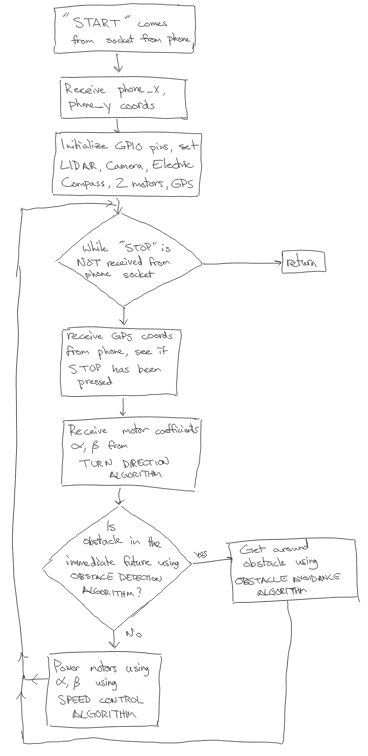 "START" comes
from socket from phone
Receive phone_x,
phone_y coords
Initialize GPIO pins, set
LIDAR, Camera, Electric
Compass, 2 motors, GPS
While "STOP" is
NOT received from
phone socket
return
receive GPS coords
from phone, see if
STOP has been
pressed
Receive motor coefficients
α, β from
TURN DIRECTION
ALGORITHM
Is
obstacle in the
immediate future using
OBSTACE DETECTION
ALGORITHM?
yes
Get around
obstacle using
OBSTACLE AVOIDANCE
ALGORITHM
No
Power motors using
α, β using
SPEED CONTROL
ALGORITHM